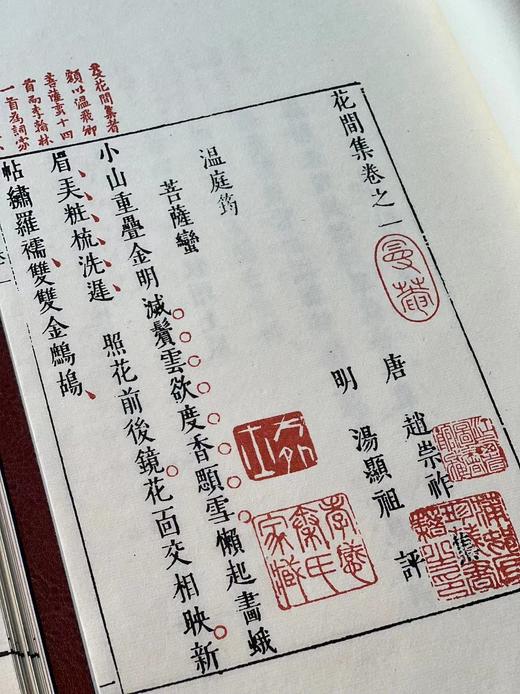 花間集卷之一
唐 趙崇祚 集
明 湯顯祖 評
温庭筠
菩薩蠻
小山重疊金明滅鬢雲欲度香顋雪懶起畵蛾
眉弄粧梳洗遲 照花前後鏡花面交相映新
帖繡羅襦雙雙金鷓鴣
花間集者
額以温飛卿
菩薩蠻十四
首而李翰林
一首為詞家